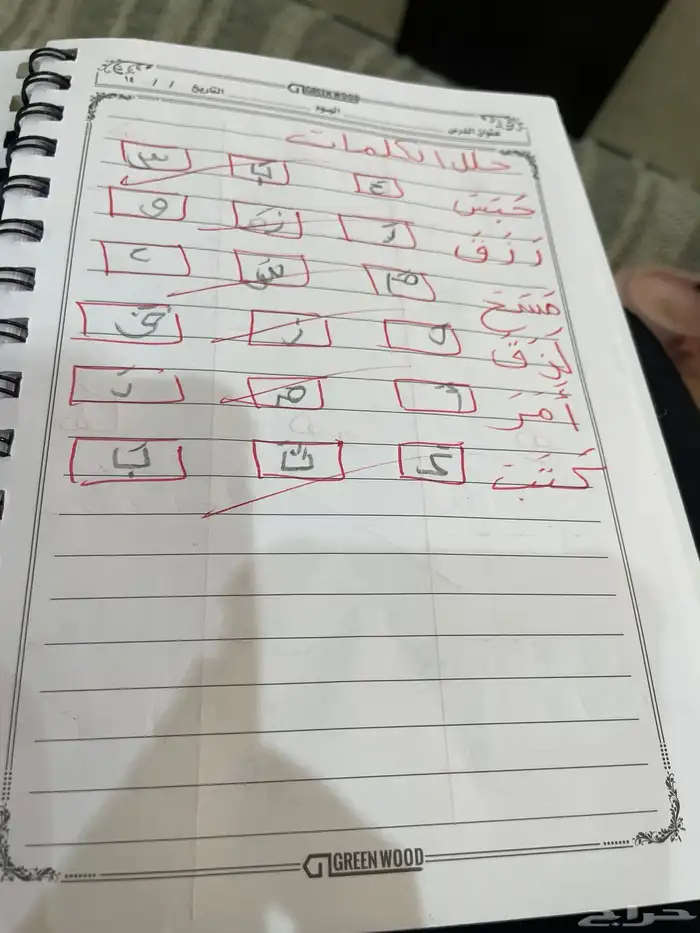 GREENWOOD
التاريخ / / ١٤
اليوم
عنوان الدرس
حلل الكلمات
حَبَسَ ح بَ س
رَزَقَ رَ زَ و
مَسَحَ مَ سَ ح
لَزِقَ ز قَ
أَمَرَ أَ مَ رَ
كَتَبَ كَ تَ بَ
GREENWOOD
حراج